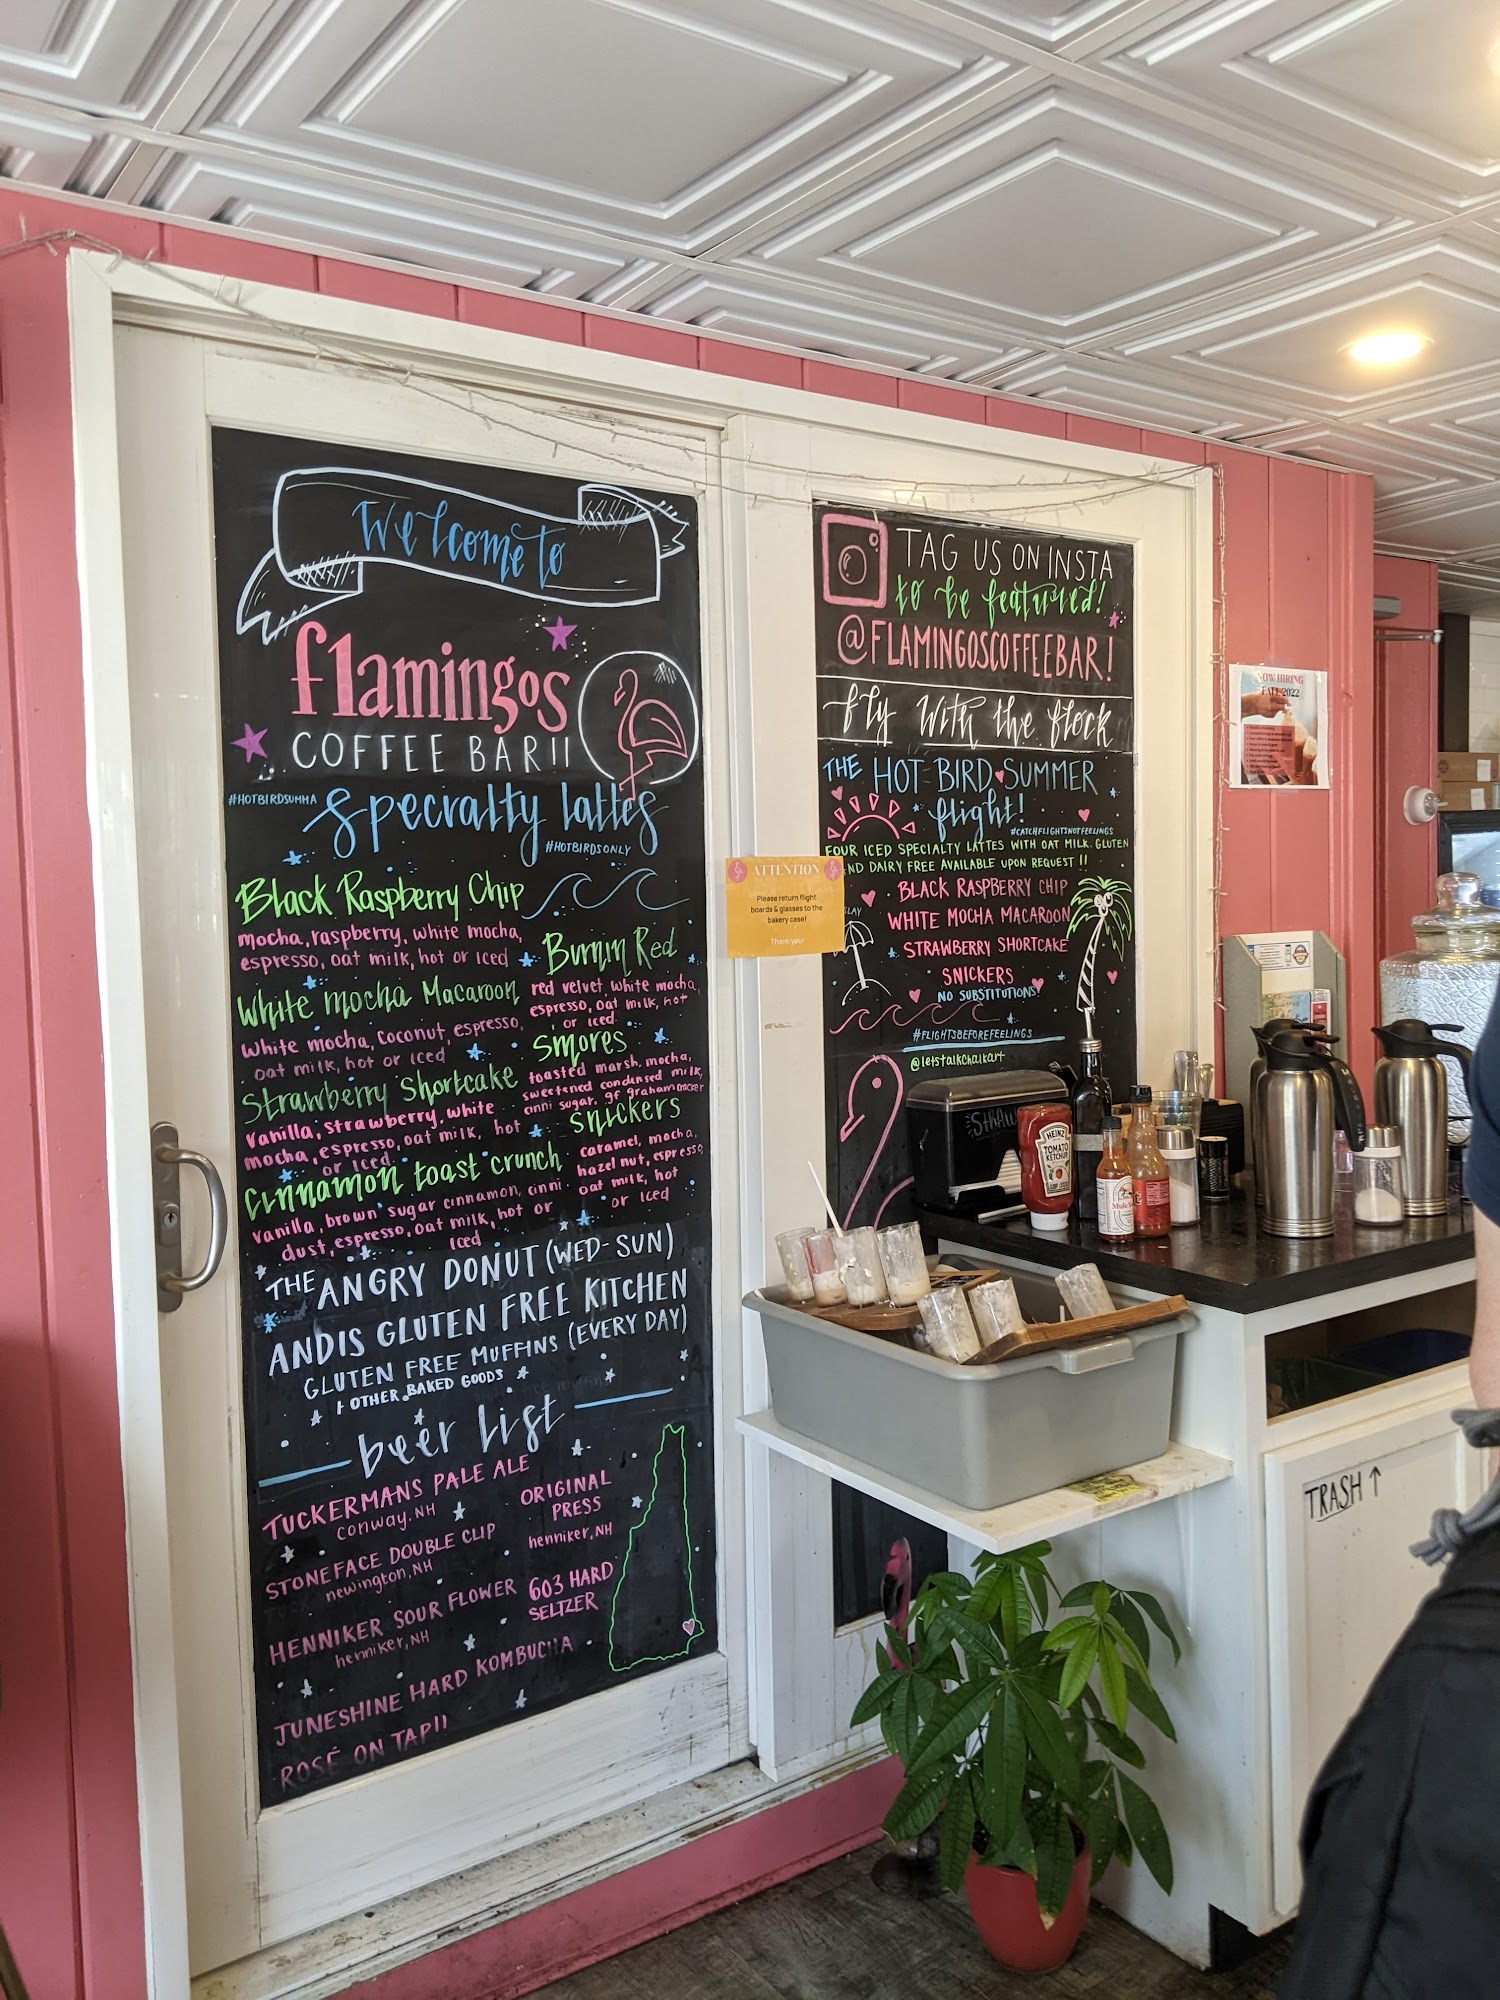 Welcome to
flamingos
COFFEE BAR!!
#HOTBIRDSUMMA
specialty lattes
#HOTBIRDSONLY
Black Raspberry Chip
mocha, raspberry, white mocha,
espresso, oat milk, hot or iced
White mocha Macaroon
white mocha, coconut, espresso,
oat milk, hot or iced
Strawberry Shortcake
vanilla, strawberry, white
mocha, espresso, oat milk, hot
or iced
Cinnamon toast crunch
vanilla, brown sugar cinnamon, cinni
dust, espresso, oat milk, hot or
iced
Burnin Red
red velvet, white mocha,
espresso, oat milk, hot
or iced
Smores
toasted marsh, mocha,
sweetened condensed milk,
cinni sugar, gf graham cracker
snickers
caramel, mocha,
hazelnut, espresso
oat milk, hot
or iced
THE ANGRY DONUT (WED-SUN)
ANDIS GLUTEN FREE KITCHEN
GLUTEN FREE MUFFINS (EVERY DAY)
+ OTHER BAKED GOODS
beer list
TUCKERMANS PALE ALE
conway, NH
STONEFACE DOUBLE CLIP
newington, NH
HENNIKER SOUR FLOWER
henniker, NH
JUNESHINE HARD KOMBUCHA
ROSÉ ON TAP!!
ORIGINAL
PRESS
henniker, NH
603 HARD
SELTZER
ATTENTION
Please return flight
boards & glasses to the
bakery case!
Thank you!
TAG US ON INSTA
to be featured!
@FLAMINGOSCOFFEEBAR!
fly with the flock
THE HOT BIRD SUMMER
flight!
#CATCHFLIGHTSNOTFEELINGS
FOUR ICED SPECIALTY LATTES WITH OAT MILK. GLUTEN
AND DAIRY FREE AVAILABLE UPON REQUEST !!
BLACK RASPBERRY CHIP
WHITE MOCHA MACAROON
STRAWBERRY SHORTCAKE
SNICKERS
NO SUBSTITUTIONS!
SLAY
#FLIGHTSBEFOREFEELINGS
@letstalkchalkart
NOW HIRING
FALL 2022
HEINZ
TOMATO
KETCHUP
TRASH ↑